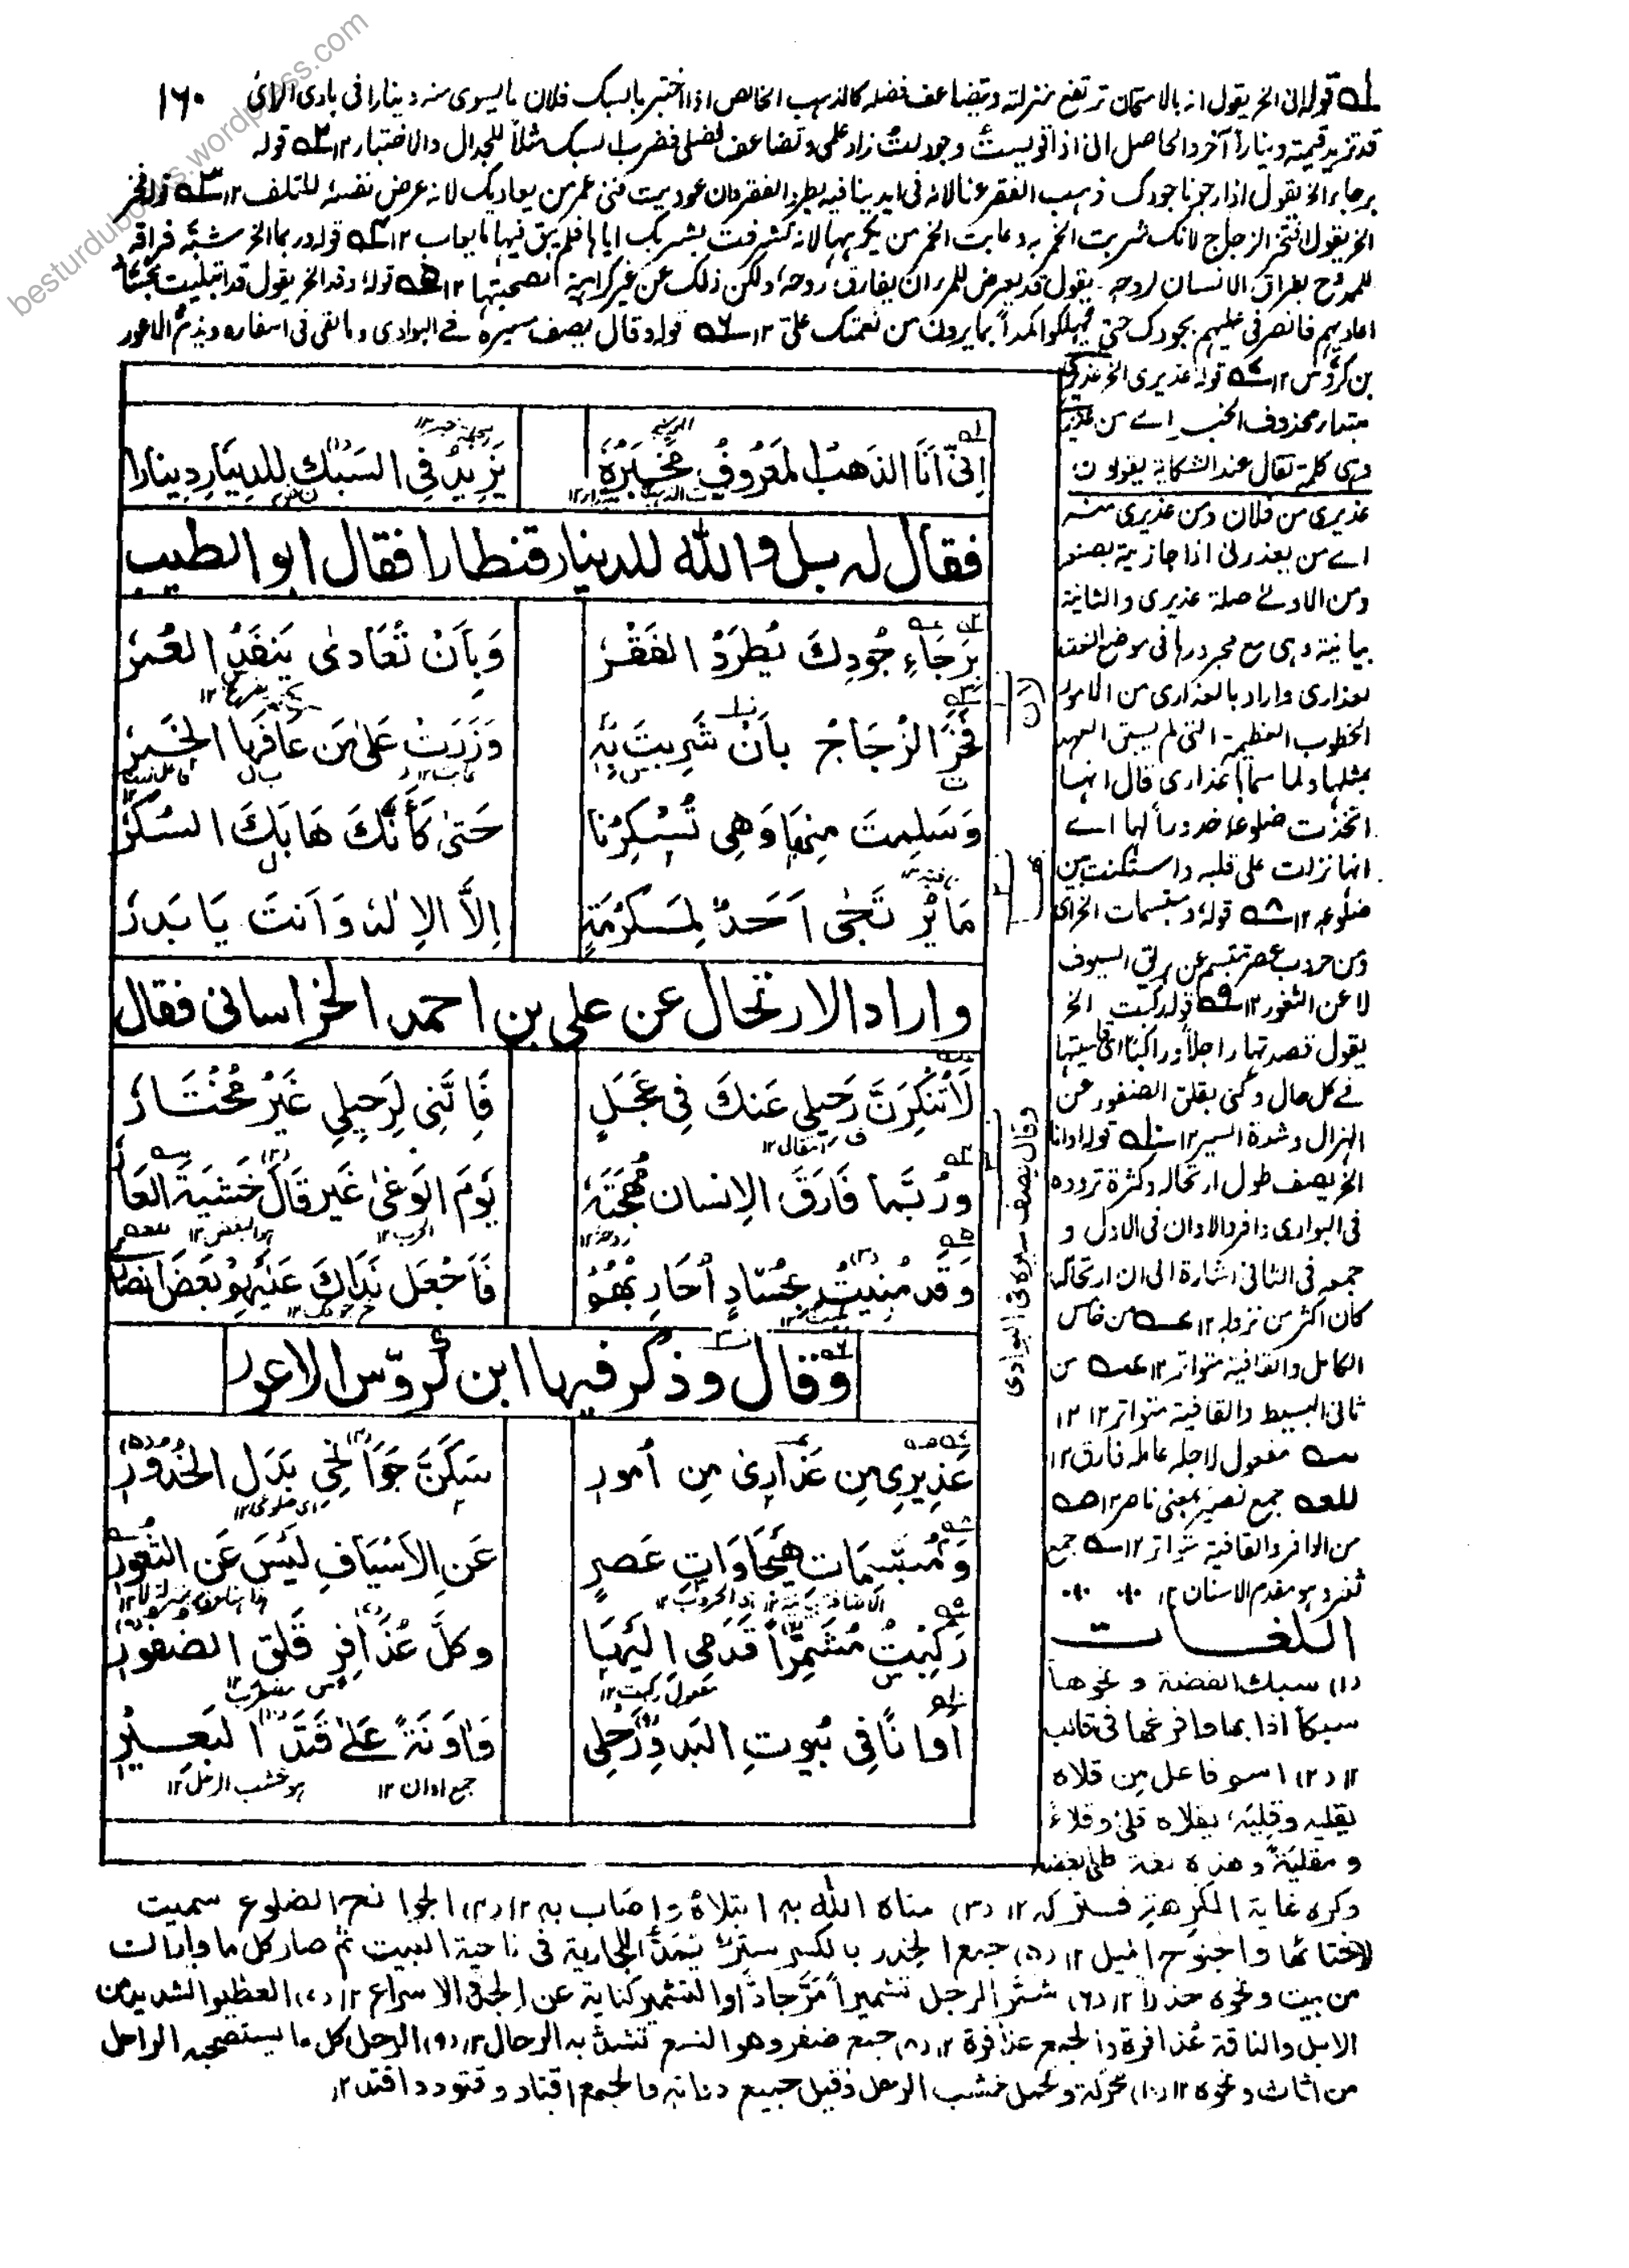 ١٦٠
له قوله انى الخ يقول انه بالامتحان ترتفع منزلته ويتضاعف فضله كالذهب الخالص اذا اختبر بالسبك فلان مايسوى منه دينارا فى بادى الراى
قد تزيد قيمته دينارا آخر والحاصل انى اذا قويست وجودلت زاد علمى وتضاعف فضلى فضرب السبك مثلا للجدال والاختبار ١٢ قوله
برجاء الخ يقول اذا رجونا جودك ذهب الفقر عنا لانه فى ايدينا فيه يطرد الفقر وان عوديت فنى عمر من يعاديك لانه عرض نفسه للتلف ١٢ قوله فخر
الخ يقول افتخر الزجاج لانك شربت الخمر به وعابت الخمر من يكرهها لانه تشرفت بشربك اياها فلم يبق فيها ما يعاب ١٢ قوله وربما الخ شبه فراقه
للممدوح بفراق الانسان لروحه يقول قد يعرض للمرء ان يفارق روحه ولكن ذلك عن غير كراهية لصحبتها ١٢ قوله وقد الخ يقول قد ابتليت بحساد
اعاديهم فانصرنى عليهم بجودك حتى يهلكوا كمدا بما يرون من نعمتك على ١٢ قوله وقال يصف مسيره فى البوادى وما لقى فى اسفاره ويذم الاعور
بن كروس ١٢ قوله عذيرى الخ عذيرى
مبتدأ محذوف الخبر اے من عذيرى
وهى كلمة تقال عند الشكاية يقولون
عذيرى من فلان ومن عذيرى منه
اے من يعذرنى اذا جازيته بصنعه
ومن الاولى صلة عذيرى والثانية
بيانية وهى مع مجرورها فى موضع النعت
لعذارى واراد بالعذارى من الامور
الخطوب العظيمة التى لم يسبق العهد
بمثلها ولما سماها عذارى قال انها
اتخذت ضلوعه خدورا لها اے
انها نزلت على قلبه واستكنت بين
ضلوعه ١٢ قوله ومبتسمات الخ اى
ومن حروب عصر تبتسم عن بريق السيوف
لا عن الثغور ١٢ قوله ركبت الخ
يقول قصدتها راجلا وراكبا
فى كل حال وكنى بقلق الضفور عن
الهزال وشدة السير ١٢ قوله اوانا
الخ يصف طول ارتحاله وكثرة تردده
فى البوادى وافرد الاوان فى الاول و
جمعه فى الثانى اشارة الى ان ارتحاله
كان اكثر من نزوله ١٢ من خامس
الكامل والقافية متواتر ١٢ من
ثانى البسيط والقافية متواتر ١٢ ١٢
مفعول لاجله عامله فارق ١٢
للعه جمع نصير بمعنى ناصر ١٢
من الوافر والقافية متواتر ١٢ جمع
ثغر وهو مقدم الاسنان ١٢
اللغات
(١) سبك الفضة ونحوها
سبكا اذابها وافرغها فى قالب
١٢ (٢) اسم فاعل من قلاه
يقليه وقليه يقلاه قلى وقلاء
ومقلية وهذه لغة طئ بغضه
اِنِّىْ اَنَا الذَهبُ المَعرُوفُ مَخْبَرُهٗ
يَزِيدُ فِى السَبْكِ لِلدِينَارِ دِينَارَا
فقال له بل والله للدينار قنطارا فقال ابو الطيب
بِرَجَاءِ جُودِكَ يُطرَدُ الفَقْرُ
وَبِاَنْ تُعَادىٰ يَنفَدُ العُمْرُ
فَخَرَ الزُجَاجُ بِاَنْ شَرِبتَ بِهٖ
وَزَرَتْ عَلىٰ مَن عَافَهَا الخَمْرُ
وَسَلِمتَ مِنهَا وَهِى تُسْكِرُنا
حَتىٰ كَاَنَّكَ هَابَكَ السُكرُ
مَا يُرْتَجٰى اَحَدٌ لِمَكرُمَةٍ
اِلاَّ الاِلٰهُ وَاَنتَ يَا بَدرُ
واراد الارتحال عن على بن احمد الخراسانى فقال
لَاتُنكِرَنَّ رَحِيلِى عَنكَ فِى عَجَلٍ
فَاِنَّنِى لِرَحِيلِى غَيْرُ مُخْتَارٖ
وَرُبَّمَا فَارَقَ الاِنسان مُهْجَتَهٗ
يَومَ الوَغىٰ غَيرَ قَالٍ خَشيَةَ العَارٖ
وَقَد مُنِيتُ بِحُسَّادٍ اُحَارِبُهُمُ
فَاجْعَل نَدَاكَ عَلَيهِمْ بَعضَ اَنصَارِى
وقال وذكر فيها ابن كروّس الاعور
عَذِيرِى مِن عَذَارىٰ مِن اُمورٖ
سَكَنَّ جَوَانِحِى بَدَلَ الخُدُورٖ
وَمُبتَسِمَاتِ هَيْجَاوَاتِ عَصرٍ
عَنِ الاَسْيَافِ لَيْسَ عَنِ الثُغُورٖ
رَكِبتُ مُشَمِّراً قَدَمِى اِلَيهَا
وكلَّ عُذَافِرٍ قَلِقِ الضفُورٖ
اَوَانًا فِى بُيوتِ البَدوِ رَحْلِى
وَاٰوِنَةً عَلىٰ قَتَدِ البَعِيرٖ
وقال يصف سيره فى البوادى
وكره غاية الكراهة فتركه ١٢ (٣) مناه الله به ابتلاه واصاب به ١٢ (٤) الجوانح الضلوع سميت
لانحنائها والجنوح الميل ١٢ (٥) جمع الخدر بالكسر ستر يمد للجارية فى ناحية البيت ثم صار كل ما واراك
من بيت ونحوه خدرا ١٢ (٦) شمر الرجل تشميرا مر جادا او التشمير كناية عن الجد فى الاسراع ١٢ (٧) العظيم الشديد من
الابل والناقة عذافرة والجمع عذافرة ١٢ (٨) جمع ضفر وهو النسع تشد به الرحال ١٢ (٩) الرحل كل ما يستصحبه الراحل
من اثاث ونحوه ١٢ (١٠) محركة خشب الرحل وقيل جميع اداته والجمع اقتاد وقتود واقتد ١٢
besturdubooks.wordpress.com